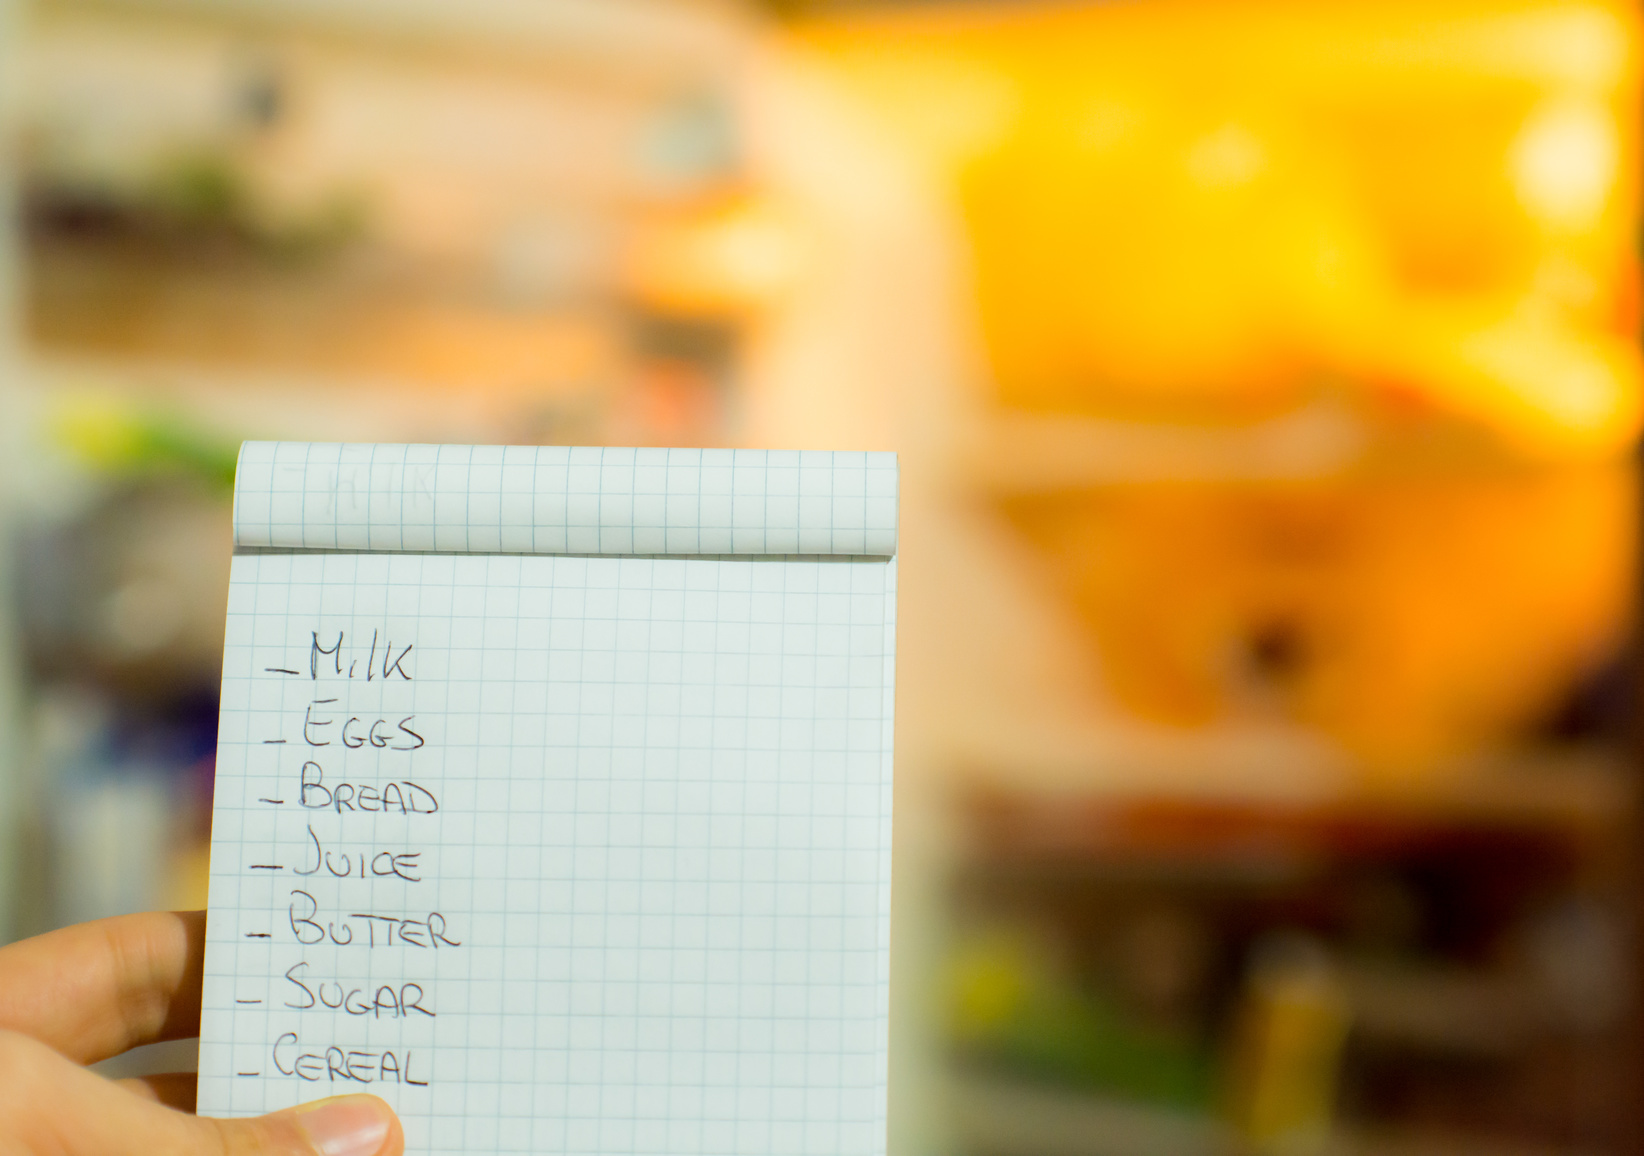 - Milk
- EGGS
- BREAD
- JUICE
- BUTTER
- SUGAR
- CEREAL